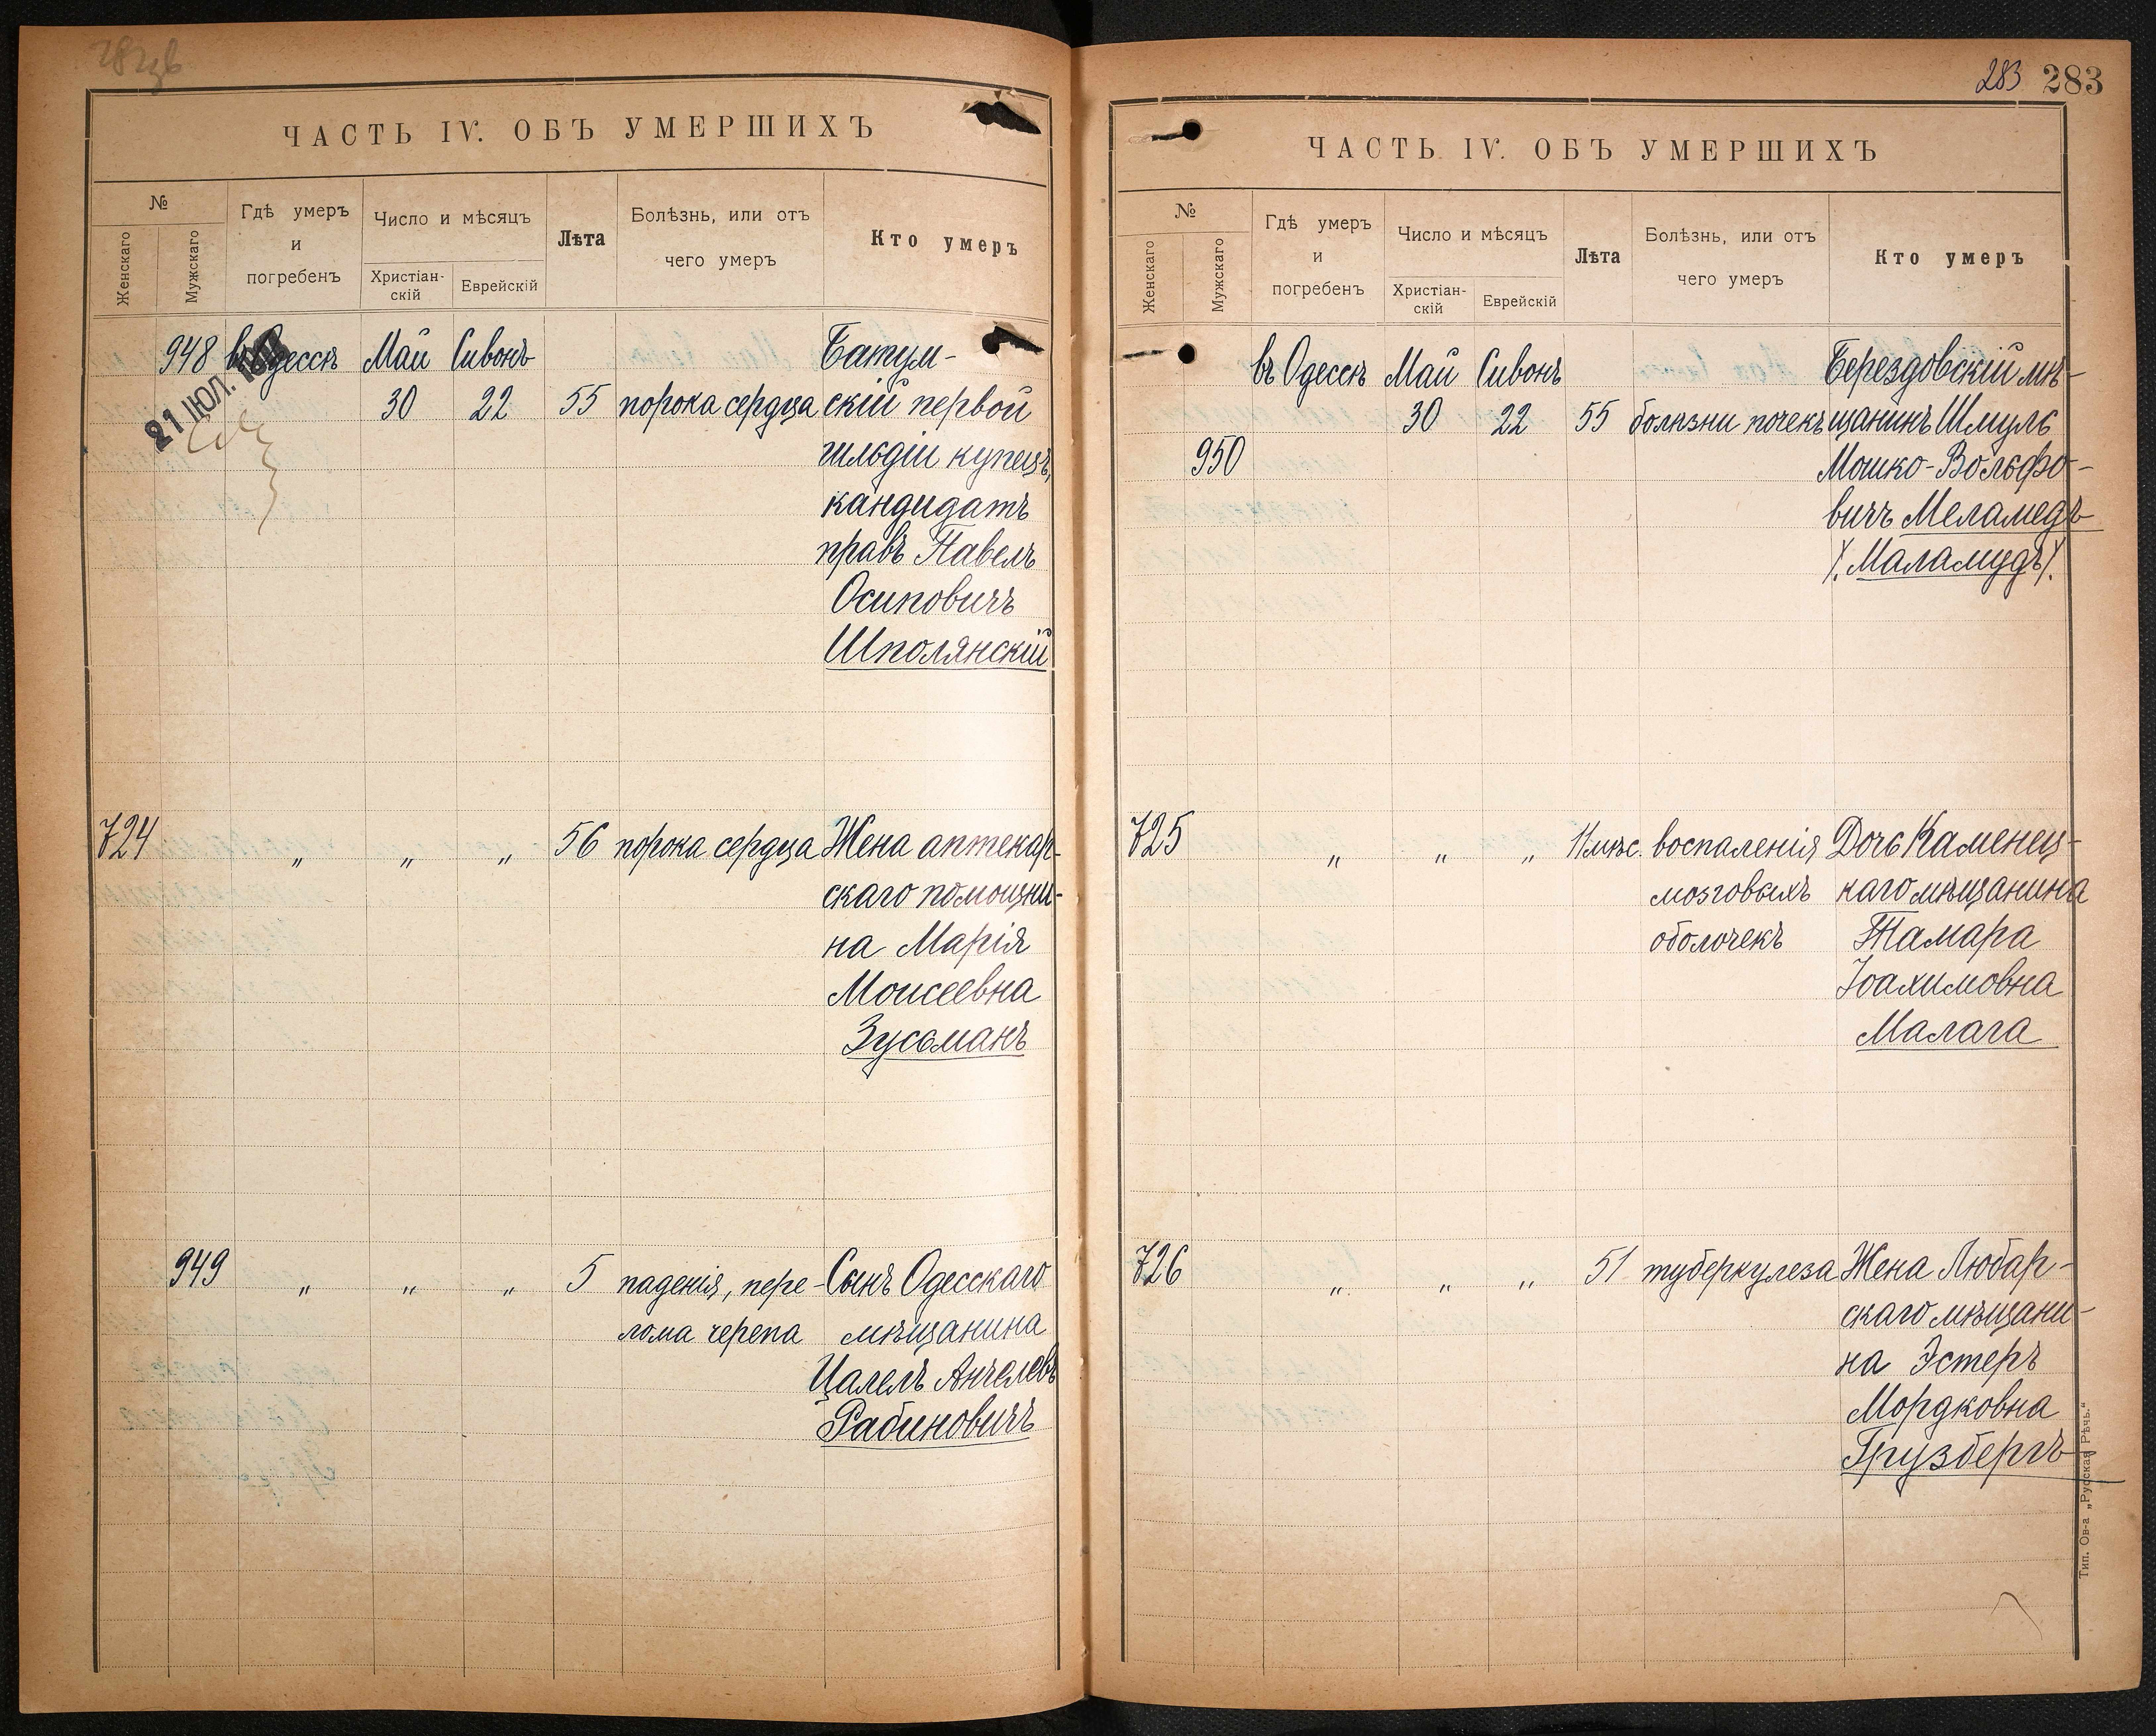 ЧАСТЬ IV. ОБЪ УМЕРШИХЪ
№
Женскаго
Мужскаго
Гдѣ умеръ
и
погребенъ
Число и мѣсяцъ
Христіан-
скій
Еврейскій
Лѣта
Болѣзнь, или отъ
чего умеръ
Кто умеръ
948 въ Одессѣ Май Сивонъ Батум-
21 ІЮЛ.
30 22 55 порока сердца скій первой
гильдіи купецъ,
кандидатъ
правъ Павелъ
Осиповичъ
Шполянскій
724 " " " 56 порока сердца Жена аптекар-
скаго помощни-
на Марія
Моисеевна
Зусьманъ
949 " " " 5 паденія, пере- Сынъ Одесскаго
лома черепа мѣщанина
Цалелъ Анчелевъ
Рабиновичъ
283 283
ЧАСТЬ IV. ОБЪ УМЕРШИХЪ
№
Женскаго
Мужскаго
Гдѣ умеръ
и
погребенъ
Число и мѣсяцъ
Христіан-
скій
Еврейскій
Лѣта
Болѣзнь, или отъ
чего умеръ
Кто умеръ
въ Одессѣ Май Сивонъ Берездовскій мѣ-
30 22 55 болѣзни почекъ щанинъ Шмуль
950 Мошко-Вольфо-
вичъ Меламедъ
/. Маламудъ/.
725 " " " 11 мѣс. воспаленія Дочь Каменец-
мозговыхъ каго мѣщанина
оболочекъ Тамара
Іоахимовна
Малага
726 " " " 51 туберкулеза Жена Любар-
скаго мѣщани-
на Эстеръ
Мордковна
Грузбергъ
Тип. Ов-а „Русская Рѣчь.“